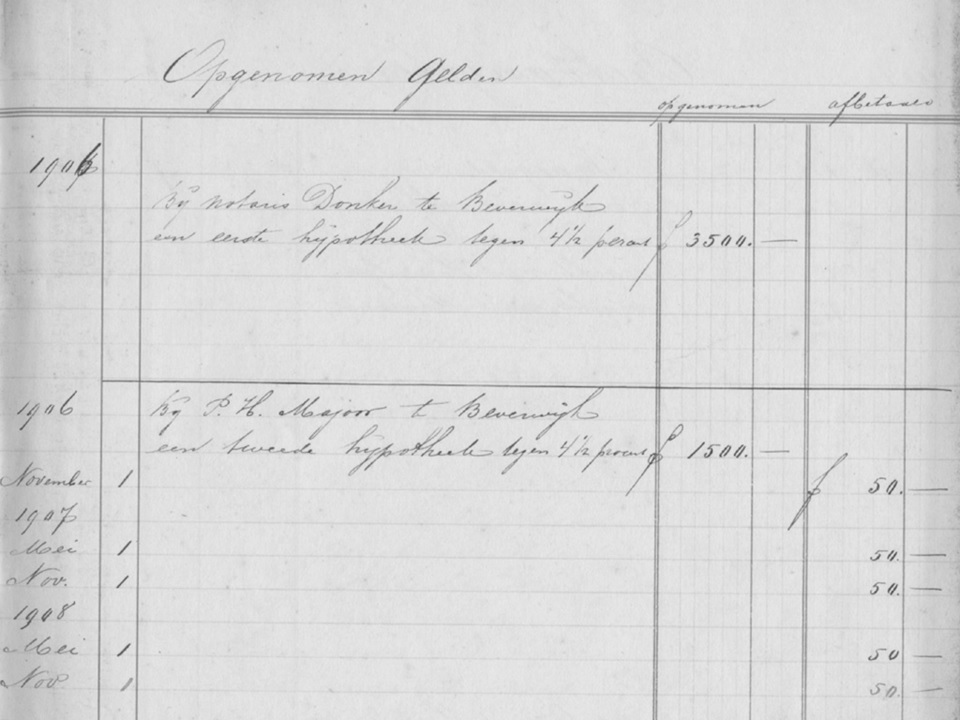 Opgenomen Gelden
opgenomen afbetaald
1906
Bij notaris Donker te Beverwijk
een eerste hypotheek tegen 4½ percent f 3500.—
1906 Bij P. H. Majoor te Beverwijk
een tweede hypotheek tegen 4½ percent f 1500.—
November 1 f 50.—
1907
Mei 1 50.—
Nov. 1 50.—
1908
Mei 1 50—
Nov 1 50.—